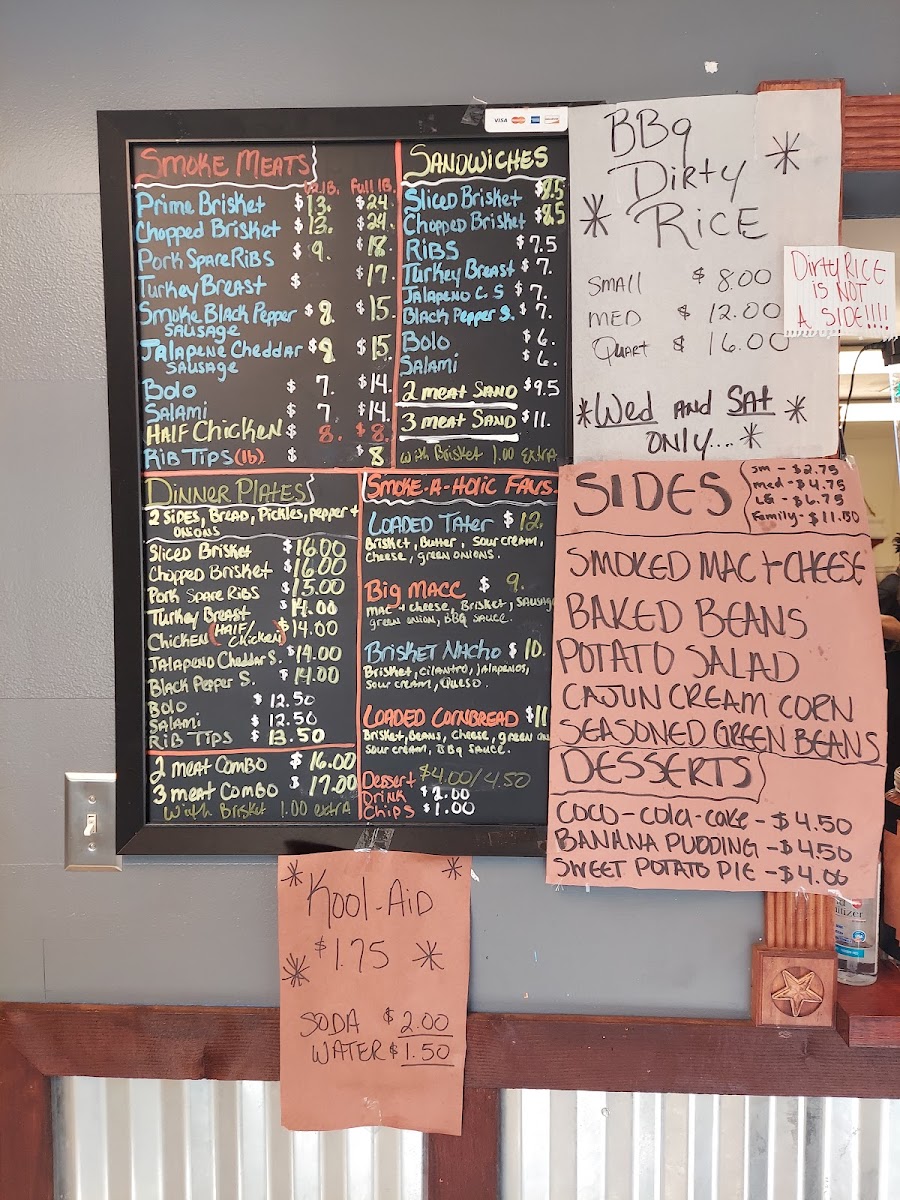 VISA
SMOKE MEATS
1/2 lB. Full lB.
Prime Brisket $13. $24.
Chopped Brisket $13. $24.
Pork Spare Ribs $9. $18.
Turkey Breast $ $17.
Smoke Black Pepper $8. $15.
SAUSAGE
Jalapene Cheddar $8. $15.
SAUSAGE
Bolo $7. $14.
Salami $7. $14.
HALF Chicken $8. $8.
Rib Tips (lb) $8
SANDWICHES
Sliced Brisket $8.5
Chopped Brisket $8.5
Ribs $7.5
Turkey Breast $7.
Jalapeno C. S $7.
Black Pepper S. $7.
Bolo $6.
Salami $6.
2 meat SAND $9.5
3 meat SAND $11.
With Brisket 1.00 extra
DINNER PLATES
2 SIDES, BREAD, Pickles, pepper +
ONIONS
Sliced Brisket $16.00
Chopped Brisket $16.00
Pork Spare Ribs $15.00
Turkey Breast $14.00
Chicken (HALF/Chicken) $14.00
Jalapeno Cheddar S. $14.00
Black Pepper S. $14.00
Bolo $12.50
Salami $12.50
Rib Tips $13.50
2 meat Combo $16.00
3 meat Combo $17.00
With Brisket 1.00 extra
SMOKE-A-Holic FAVS.
LOADED Tater $12.
Brisket, Butter, Sour cream,
Cheese, green onions.
Big Macc $9.
mac + cheese, Brisket, SAUSAGE
green onion, BBQ SAUCE.
Brisket Nacho $10.
Brisket, cilantro, jalapenos,
Sour cream, Queso.
LOADED Cornbread $11
Brisket, Beans, cheese, green on
Sour cream, BBq sauce.
Dessert $4.00/4.50
Drink $2.00
Chips $1.00
BBq
Dirty
RICE
SMALL $8.00
MED $12.00
Quart $16.00
*Wed AND SAt *
ONLY.... *
Dirty RICE
is NOt
A SIDE!!!!
SIDES
sm - $2.75
med - $4.75
LG - $6.75
Family - $11.50
SMOKED MAC + CHEESE
BAKED BEANS
POTATO SALAD
CAJUN CREAM CORN
SEASONED GREEN BEANS
DESSERTS
COCO-COLA-CAKE - $4.50
BANANA PUDDING - $4.50
SWEET POTATO PIE - $4.00
Kool-AiD
$1.75
SODA $2.00
WATER $1.50